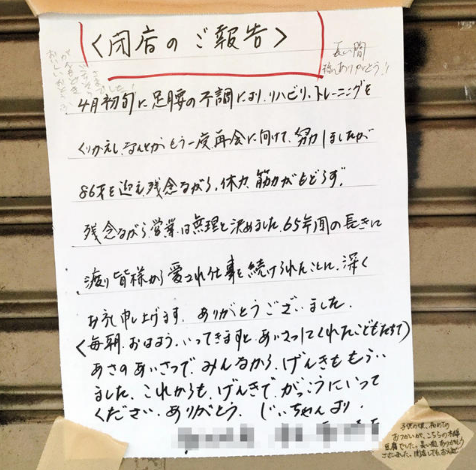 〈閉店のご報告〉
長い間
ありがとう!!
4月初旬に足腰の不調により、リハビリ、トレーニングを
くりかえし、なんとかもう一度再会に向けて、努力しましたが
86才を迎え残念ながら、体力、筋力がもどらず、
残念ながら営業は無理と決めました。65年間の長きに
渡り皆様から愛され仕事を続けられたことに、深く
お礼申し上げます。ありがとうございました。
(毎朝、おはよう、いってきますと、あいさつしてくれたこどもたちへ)
あさのあいさつで、みんなから、げんきをもらい
ました。これからも、げんきで、がっこうにいって
ください。ありがとう。じいちゃんより。
子供の頃、初めての
おつかいが、こちらのお豆腐
でした。長い間ありがとう
ございました。